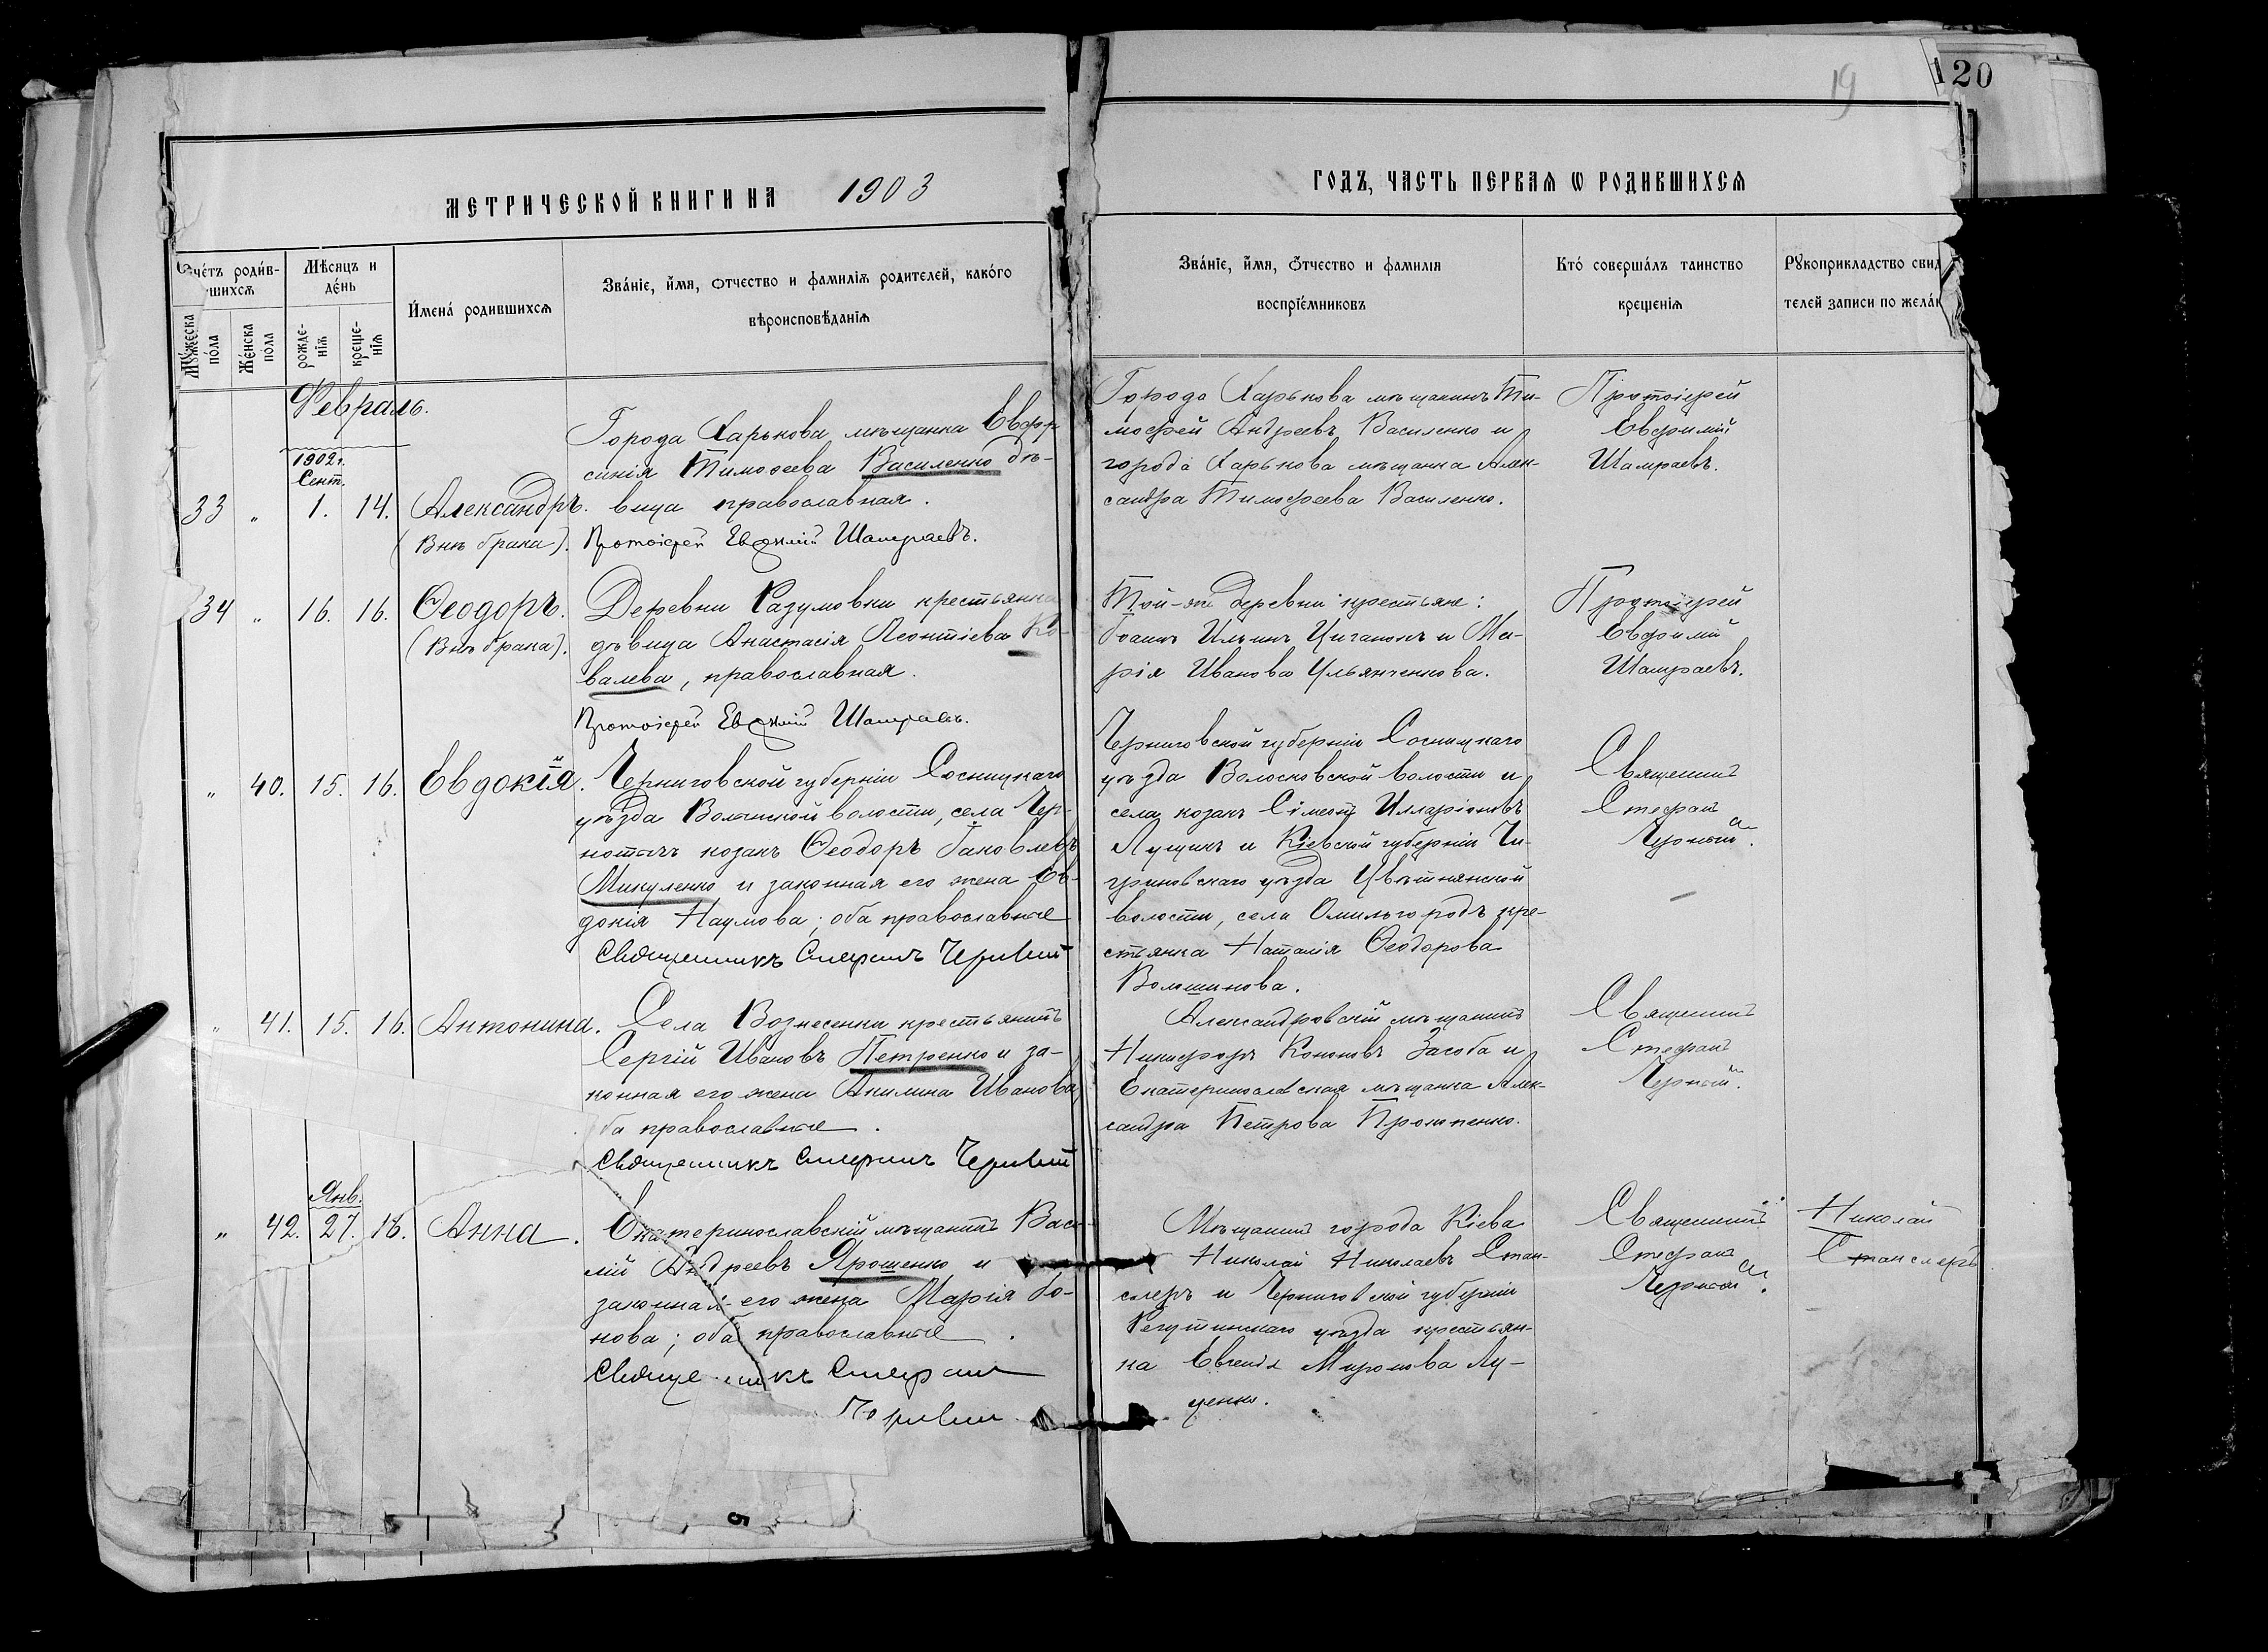 19
120
МЕТРИЧЕСКОЙ КНИГИ НА 1903
ГОДЪ, ЧАСТЬ ПЕРВАѦ Ѡ РОДИВШИХСѦ
Счéтъ роди́в-
шихсѧ
Мѣсяцъ и
де́нь
Мꙋ́жеска
по́ла
Же́нска
по́ла
рожде-
нїѧ
креще-
нїѧ
И́мена́ родившихсѧ
Зва́нїе, и́мя, ѻтчество и фамилїѧ родителей, како́го
вѣроисповѣданїѧ
Зва́нїе, и́мя, ѻтчество и фамилїя
воспрїе́мниковъ
Кто́ соверша́лъ таинство
крещенїѧ
Рꙋкоприкладство свид
телей записи по жела́н
Февраль.
1902 г.
Сент.
33 " 1. 14. Александръ.
(Внѣ брака).
Города Харькова мѣщанка Евфр
синія Тимоѳеева Василенко дѣ-
вица православная.
Протоіерей Евфимій Шамраевъ.
Города Харькова мѣщанинъ Ти-
мофей Андреевъ Василенко и
города Харькова мѣщанка Алек-
сандра Тимофеева Василенко.
Протоіерей
Евфимій
Шамраевъ.
34 " 16. 16. Ѳеодоръ.
(Внѣ брака).
Деревни Разумовки крестьянка
дѣвица Анастасія Леонтіева Ко-
валева, православная.
Протоіерей Евфимій Шамраевъ.
Той-же деревни крестьяне:
Іоаннъ Ильинъ Циганокъ и Ма-
рія Иванова Ульянченкова.
Протоіерей
Евфимій
Шамраевъ.
" 40. 15. 16. Евдокія.
Черниговской губерніи Сосницкаго
уѣзда Волынской волости, села Чер-
нотичъ козакъ Ѳеодоръ Іаковлевъ
Микуленко и законная его жена Ев-
докія Наумова; оба православные
Священникъ Стефанъ
Черниговской губерніи Сосницкаго
уѣзда Волосковской волости и
села козакъ Сімеонъ Илларіоновъ
Лущикъ и Кіевской губерніи Чи-
гриновскаго уѣзда Цвѣтнянской
волости, села Омильгородъ кре-
стьянка Наталія Ѳеодорова
Волошинова.
Священникъ
Стефанъ
" 41. 15. 16. Антонина.
Села Вознесенки крестьянинъ
Сергій Ивановъ Петренко и за-
конная его жена Акилина Иванова,
ба православные.
Священникъ Стефанъ
Александровскій мѣщанинъ
Никифоръ Кононовъ Засоба и
Екатеринославская мѣщанка Алек-
сандра Петрова Прокопенко.
Священникъ
Стефанъ
Янв.
" 42. 27. 16. Анна.
Екатеринославскій мѣщанинъ Васи-
лій Андреевъ Ярошенко и
законная его жена Марія Іо-
нова; оба православные.
Священникъ Стефанъ
Мѣщанинъ города Кіева
Николай Николаевъ Стан-
слеръ и Черниговской губерніи
уѣзда крестьян-
ка Евгенія Миронова Лу-
ценко.
Священникъ
Стефанъ
Николай
Станслеръ
5